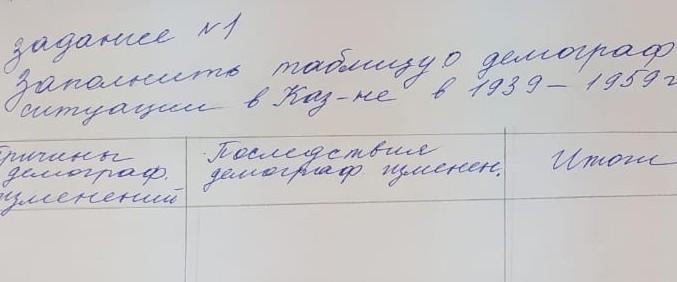 задание №1
Заполнить таблицу о демограф
ситуации в Каз-не в 1939 – 1959 г
Причины
демограф.
изменений
Последствия
демограф изменен.
Итоги